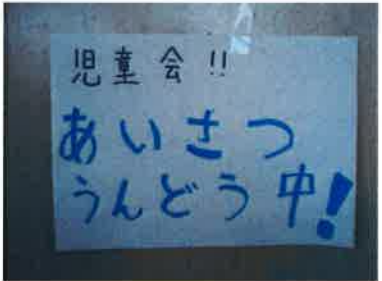 児童会!!
あいさつ
うんどう中!